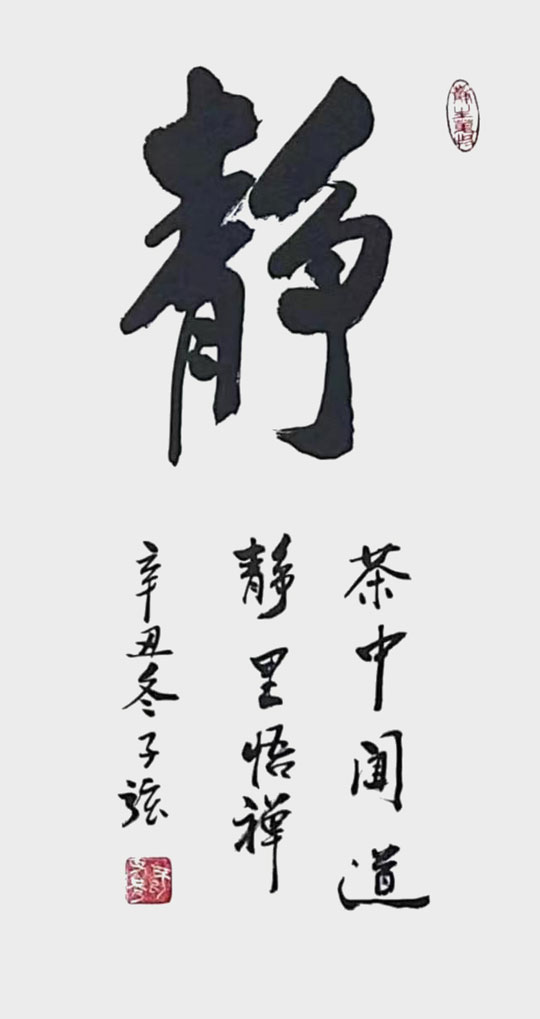 静
茶中闻道
静里悟禅
辛丑冬子弦